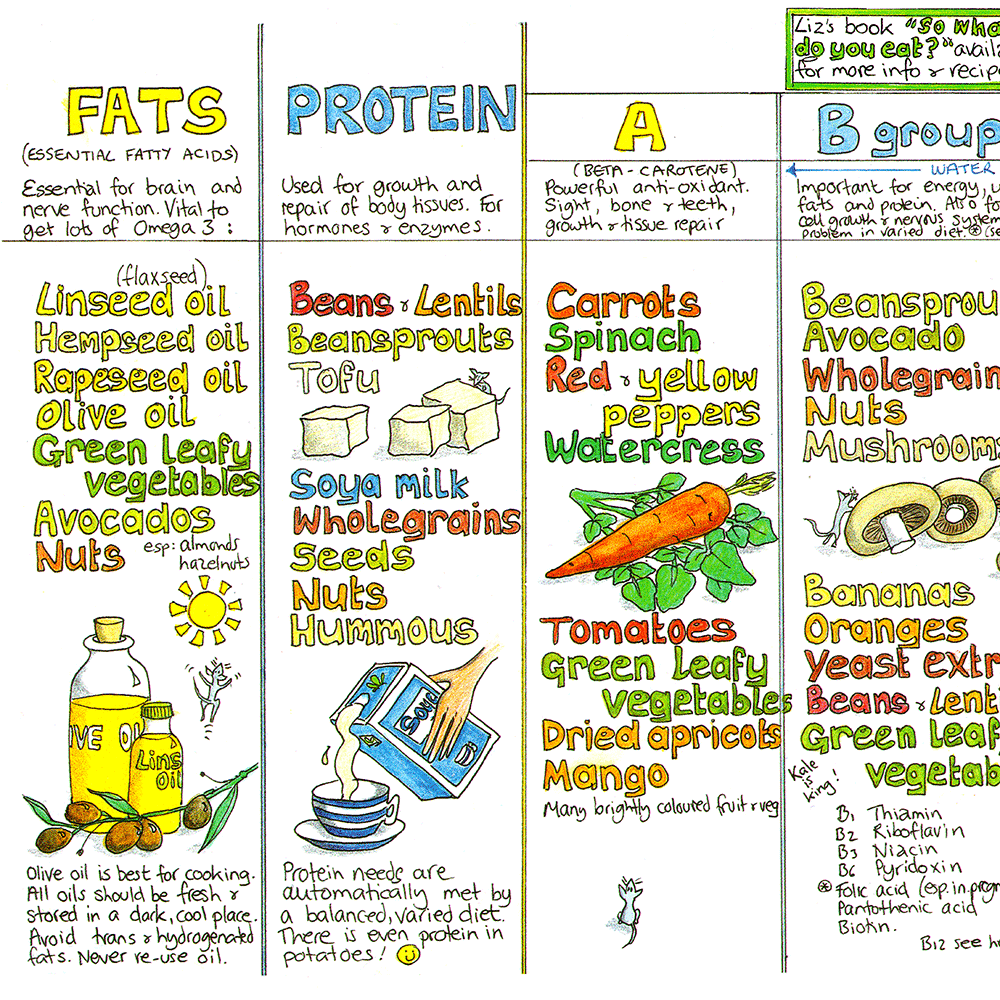 Liz's book "So wha
do you eat?" availa
for more info & recip
FATS
(ESSENTIAL FATTY ACIDS)
Essential for brain and
nerve function. Vital to
get lots of Omega 3 :
(flaxseed)
Linseed oil
Hempseed oil
Rapeseed oil
Olive oil
Green leafy
vegetables
Avocados
Nuts esp: almonds
hazelnuts
IVE OI
Lins
Oil
Olive oil is best for cooking.
All oils should be fresh &
stored in a dark, cool place.
Avoid trans & hydrogenated
fats. Never re-use oil.
PROTEIN
Used for growth and
repair of body tissues. For
hormones & enzymes.
Beans & Lentils
Beansprouts
Tofu
Soya milk
Wholegrains
Seeds
Nuts
Hummous
Soya
Protein needs are
automatically met by
a balanced, varied diet.
There is even protein in
potatoes!
A
(BETA-CAROTENE)
Powerful anti-oxidant.
Sight, bone & teeth,
growth & tissue repair
Carrots
Spinach
Red & yellow
peppers
Watercress
Tomatoes
Green leafy
vegetables
Dried apricots
Mango
Many brightly coloured fruit & veg
B group
WATER
Important for energy, u
fats and protein. Also fo
cell growth & nervous system
problem in varied diet. * (se
Beansprou
Avocado
Wholegrain
Nuts
Mushrooms
Bananas
Oranges
Yeast extr
Beans & Lenti
Green leaf
vegetab
Kale
is
king!
B1 Thiamin
B2 Riboflavin
B3 Niacin
B6 Pyridoxin
* Folic acid (esp. in pregn
Pantothenic acid
Biotin.
B12 see h